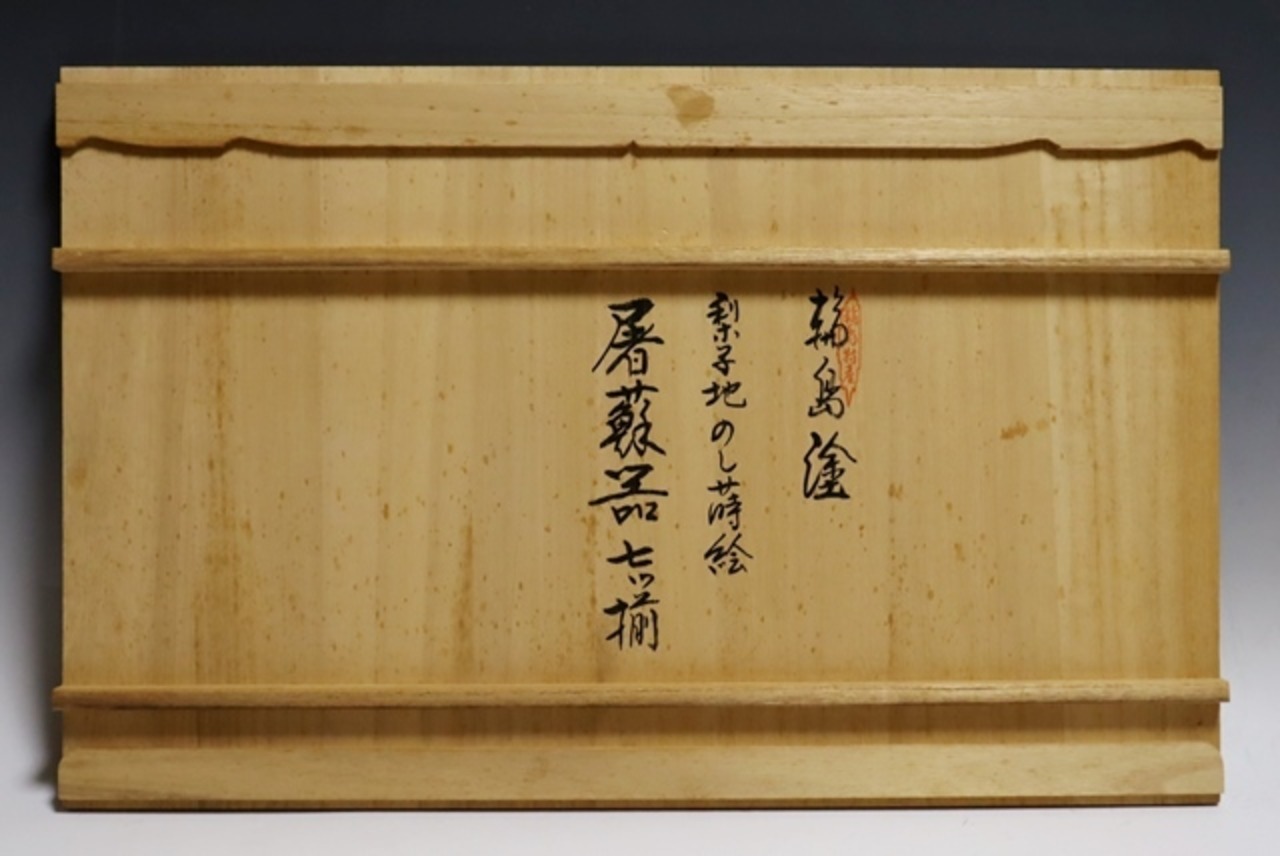 輪島塗
梨子地のし蒔絵
屠蘇器七ツ揃